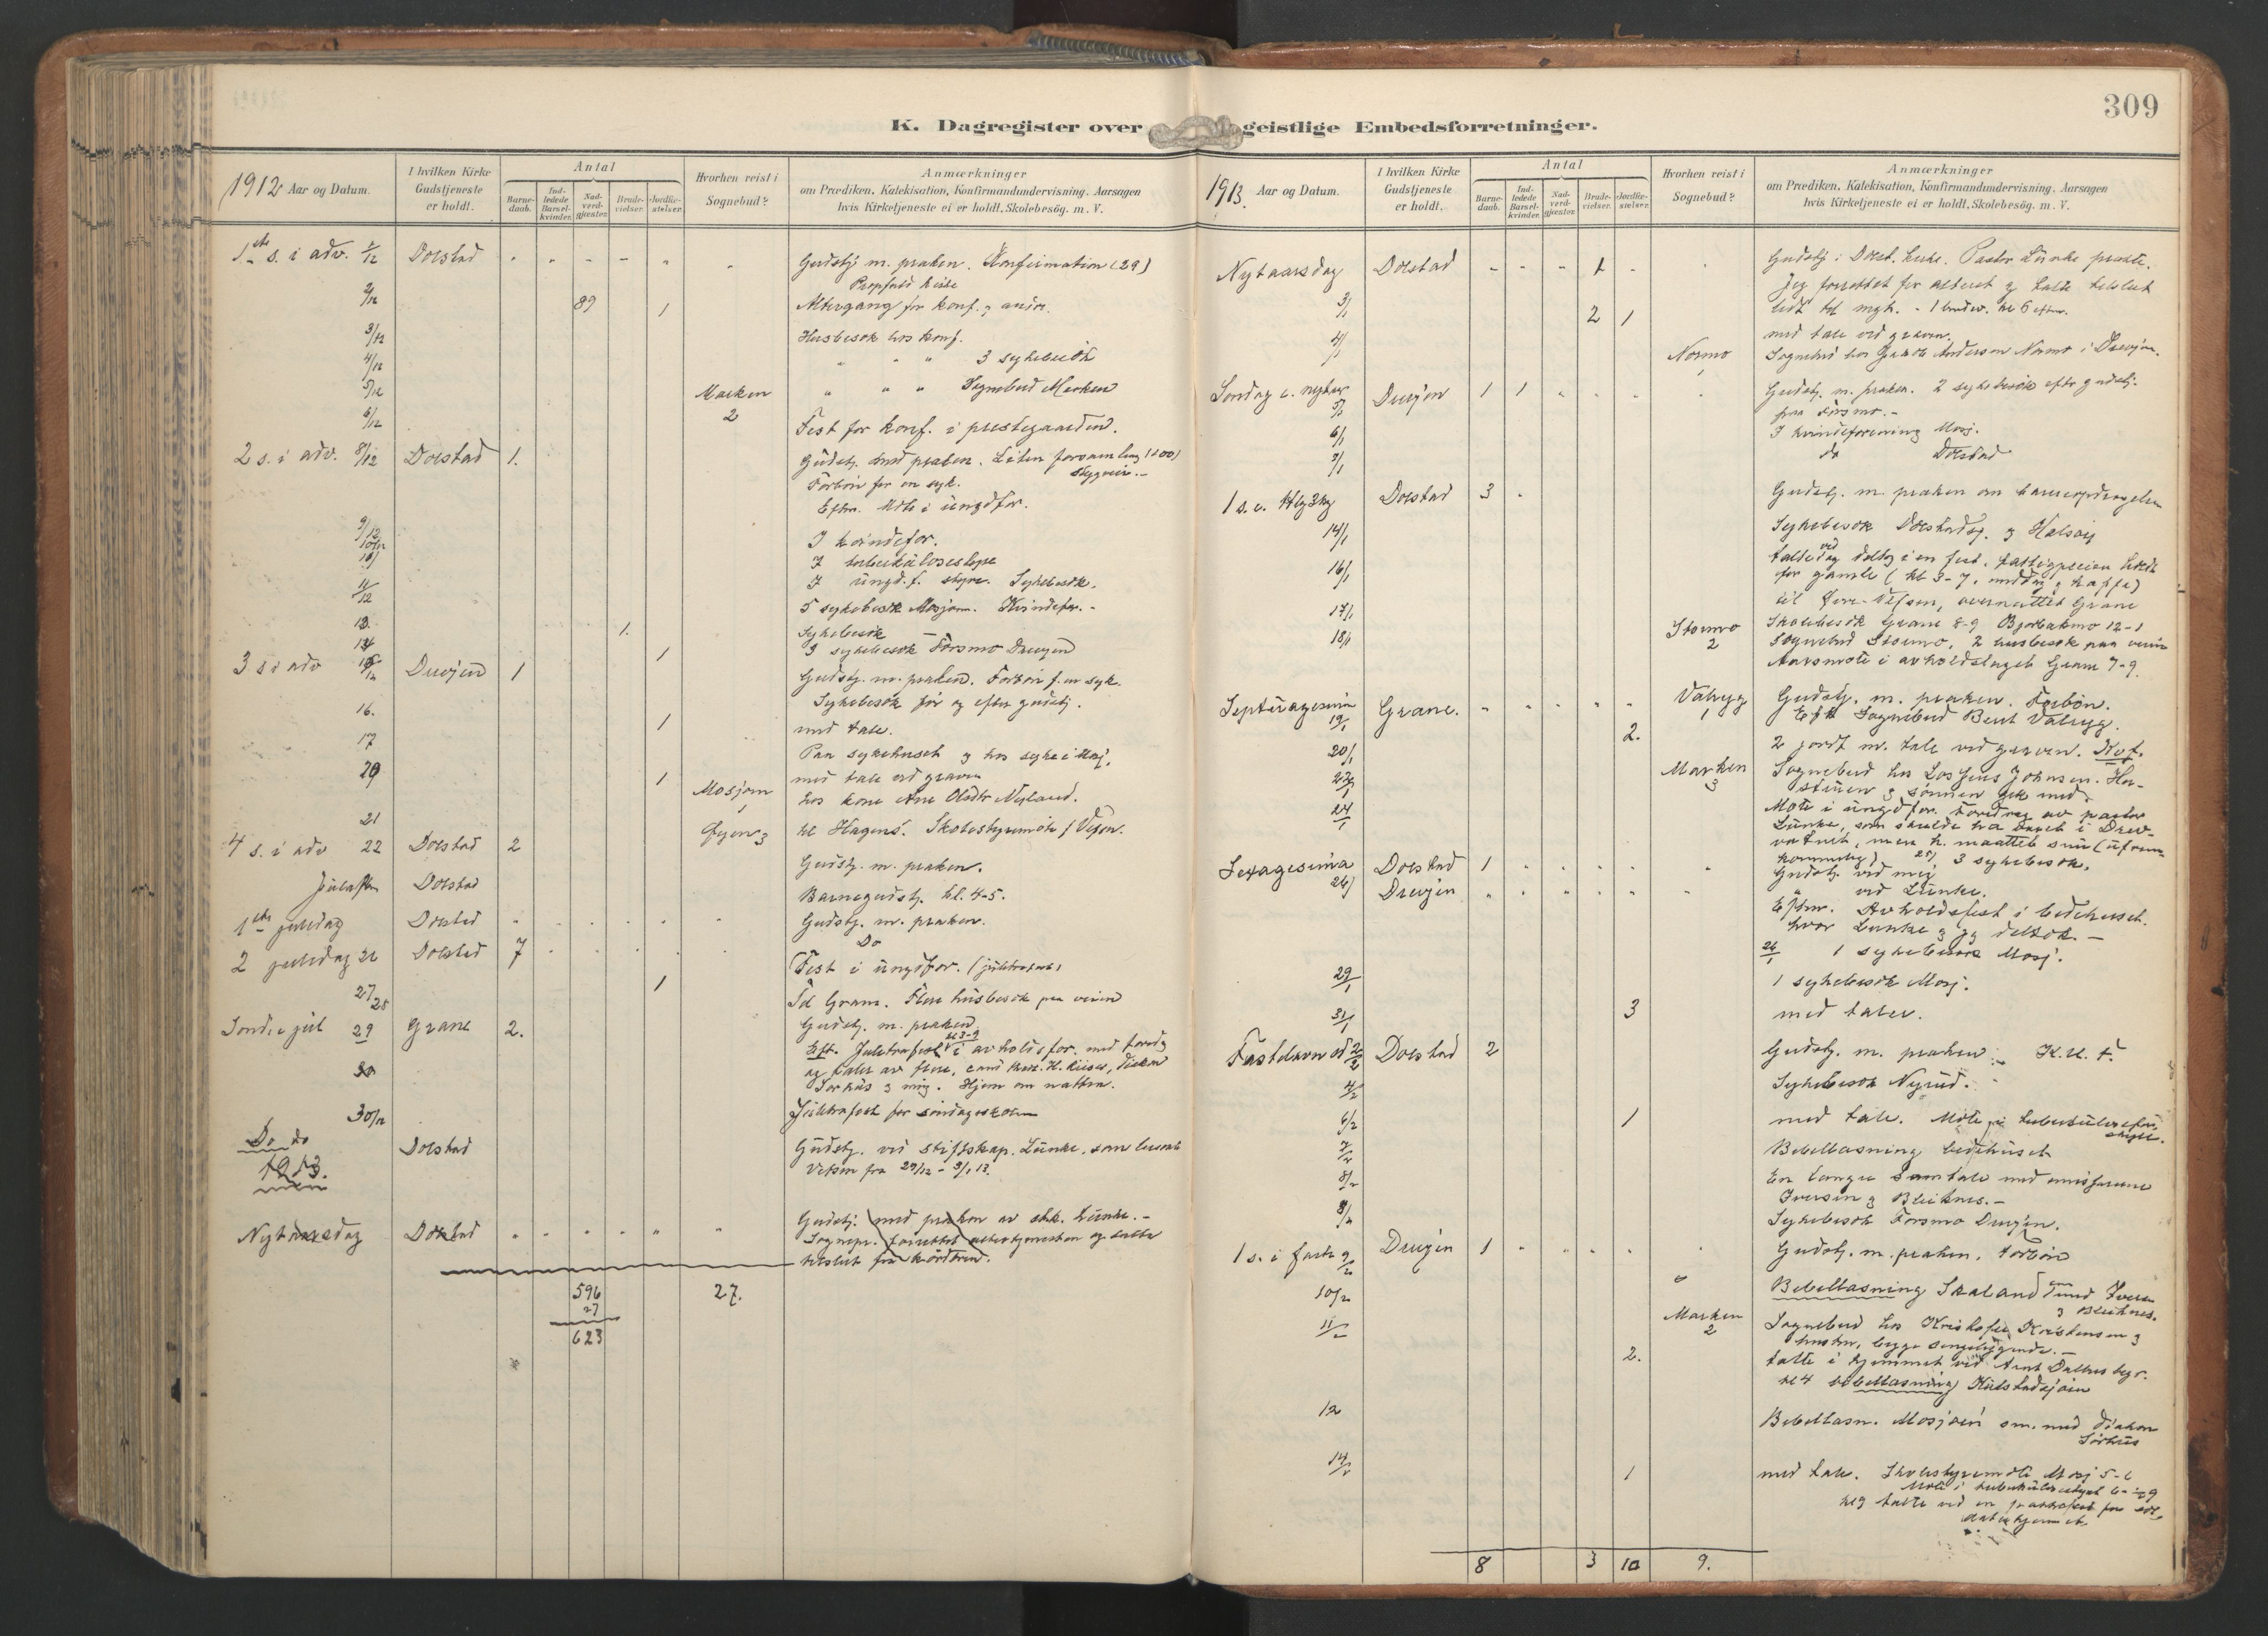 309
K. Dagregister over geistlige Embedsforretninger.
1912 Aar og Datum.
I hvilken Kirke Gudstjeneste er holdt.
Antal
Barne-daab.
Ind-ledede Barsel-kvinder.
Nad-verd-gjæster.
Brude-vielser.
Jordfæ-stelser.
Hvorhen reist i Sognebud?
Anmærkninger
om Prædiken, Katekisation, Konfirmandundervisning, Aarsagen
hvis Kirketjeneste ei er holdt, Skolebesøg. m. V.
1ste s. i adv. 1/12 Dolstad - - - - - - Gudstj. m. præken. Konfirmation (29)
Propfuld kirke
2/12 89 1 Altergang for konf. og andre.
3/12 Husbesøk hos konf.
4/12 " " " 3 sykebesøk
5/12 Marken 2 " " " Sognebud Marken
6/12 Fest for konf. i prestegaarden.
2 s. i adv. 8/12 Dolstad 1. Gudstj. med præken. Liten forsamling (100)
Styggveir.-
Forbøn for en syk.
Efterm. Møte i ungdfor.
9/12 I kvindefor.
10/12 I tuberkuloseskpe
10/ I ungd.f. styre. Sykebesøk.
11/12 5 sykebesøk Mosjøen. Kvindefor.-
12. 1. Sykebesøk
14 1 3 sykebesøk Forsmo Drevjen
3 s i adv 15/12 Drevjen 1 Gudstj. m. præken. Forbøn f. en syk.
Sykebesøk før og efter gudstj.
16. 1 med tale.
17 Paa sykehuset og hos syke i Mosj.
20 1 Mosjøen 1 med tale ved graven
hos kone Ane Olsdtr Nyland.
21 3 kl Hagens. Skolestyremøte i Vefsn.
4 s. i adv 22 Dolstad 2 Gudstj. m. præken.
Juleaften Dolstad Barnegudstj. kl. 4-5.
1ste juledag Dolstad - - - - - - Gudstj. m. præken.
2 juledag 26 Dolstad 7 - - - - - Do
Fest i ungdfor. (juletræfest)
27/28 1 Til Grane. Flere husbesøk paa veien
Sønd. e jul 29 Grane 2. Gudstj. m. præken
Eft. Juletræfest kl 3-9 i avholdsfor. med foredr.
og taler av flere, diakon
Sørhus og mig. Hjem om natten.
30
30/12 Juletræfest for søndagsskolen
Do do Dolstad Gudstj. ved stiftskap. Lunke, som besøkte
Vefsn fra 29/12 - 3/1 13.
1913.
Nytaarsdag Dolstad - - - - - - Gudstj. med præken av stk. Lunke.-
Sognepr. forrettet altertjenesten og talte
tilslut fra kordøren.
596 27.
27
623
1913. Aar og Datum.
I hvilken Kirke Gudstjeneste er holdt.
Antal
Barne-daab.
Ind-ledede Barsel-kvinder.
Nad-verd-gjæster.
Brude-vielser.
Jordfæ-stelser.
Hvorhen reist i Sognebud?
Anmærkninger
om Prædiken, Katekisation, Konfirmandundervisning, Aarsagen
hvis Kirketjeneste ei er holdt, Skolebesøg. m. V.
Nytaarsdag Dolstad - - - 1 - - Gudstj. i Dolst. kirke. Pastor Lunke prækte.
Jeg forrettet for alteret og talte tilslut
litt til mgh. - 1 brudev. kl 6 efterm.
3/1 2 1 med tale ved graven.
4/1 Normo 1 Sognebud hos Jakob Anderson Normo i Drevjen.
Søndag e. nytaar 5/1 Drevjen 1 1 - - - - Gudstj. m. præken. 2 sykebesøk efter gudstj.
paa Forsmo.-
6/1 I kvindeforening Mosj.
7/1 do Dolstad
1 s. e. Hlg 3 kg Dolstad 3 - Gudstj. m. præken om barneopdragelse
14/1 Sykebesøk Dolstadsj. og Halsøy
16/1 talte ved og deltog i en fest,
for gamle (kl 3-7, middag og kaffe)
17/1 til Øvre-Vefsn, overnattet Grane
18/1 Stormo 2 Skolebesøk Grane 8-9 Bjorbakmo 12-1
Sognebud Stormo, 2 husbesøk paa veien
Aarsmøte i avholdslaget Grane 7-9.
Septuagesima 19/1 Grane. - - - - - Valryg 1 Gudstj. m. præken. Forbøn.
Eft Sognebud Bent Valryg.
20/1 2. 2 jordf. m. tale ved graven. Kvf.
23/1 Marken 3 Sognebud hos Johnsen. Hu-
struen og sønnen gik med.
24/1 Møte i ungdfor. Foredrag av pastor
Lunke, som skulde ha været i Drev-
vatnet, men h. maatte snu (ufrem-
kommelig) 25/1 3 sykebesøk.
Sexagesima 26/1 Dolstad 1 - - - - - Gudstj. ved mig
Drevjen - - - - - - " ved Lunke.
Efterm. Avholdsfest i bedehuset.
hvor Lunke og jeg deltok.-
26/1 1 sykebesøk Mosj.
29/1 1 sykebesøk Mosj.
31/1 3 med taler.
Fastelavn 2/2 Dolstad 2 Gudstj. m. præken. K.U.F.
4/2 Sykebesøk Nyrud.
6/2 1 med tale. Møte i tuberkulose-
styre.
7/2 Bibellæsning bedehuset
8/2 En længre samtale med emissærene
Iversen og Bleiknes.-
8/2 Sykebesøk Forsmo Drevjen.
1 s. i faste 9/2 Drevjen 1 - - - - - Gudstj. m. præken. Forbøn
10/2 Bibellæsning Skaland sm. med Iversen
og Bleiknes.
11/2 Marken 2 Sognebud hos Kristofer Kristensen og
hustru, begge sengeliggende.-
2. talte i hjemmet ved Arnt Dalhus begr.
kl 4 bibellæsning Kulstadsjøen
12 Bibellæsn. Mosjøen sm. med diakon
Sørhus
14/2 1 med tale. Skolestyremøte Mosj 5-6
Møte i tuberkulosestyret 6-
kl 9 talte ved en for sol-
daterhjemmet
8 3 10 9.